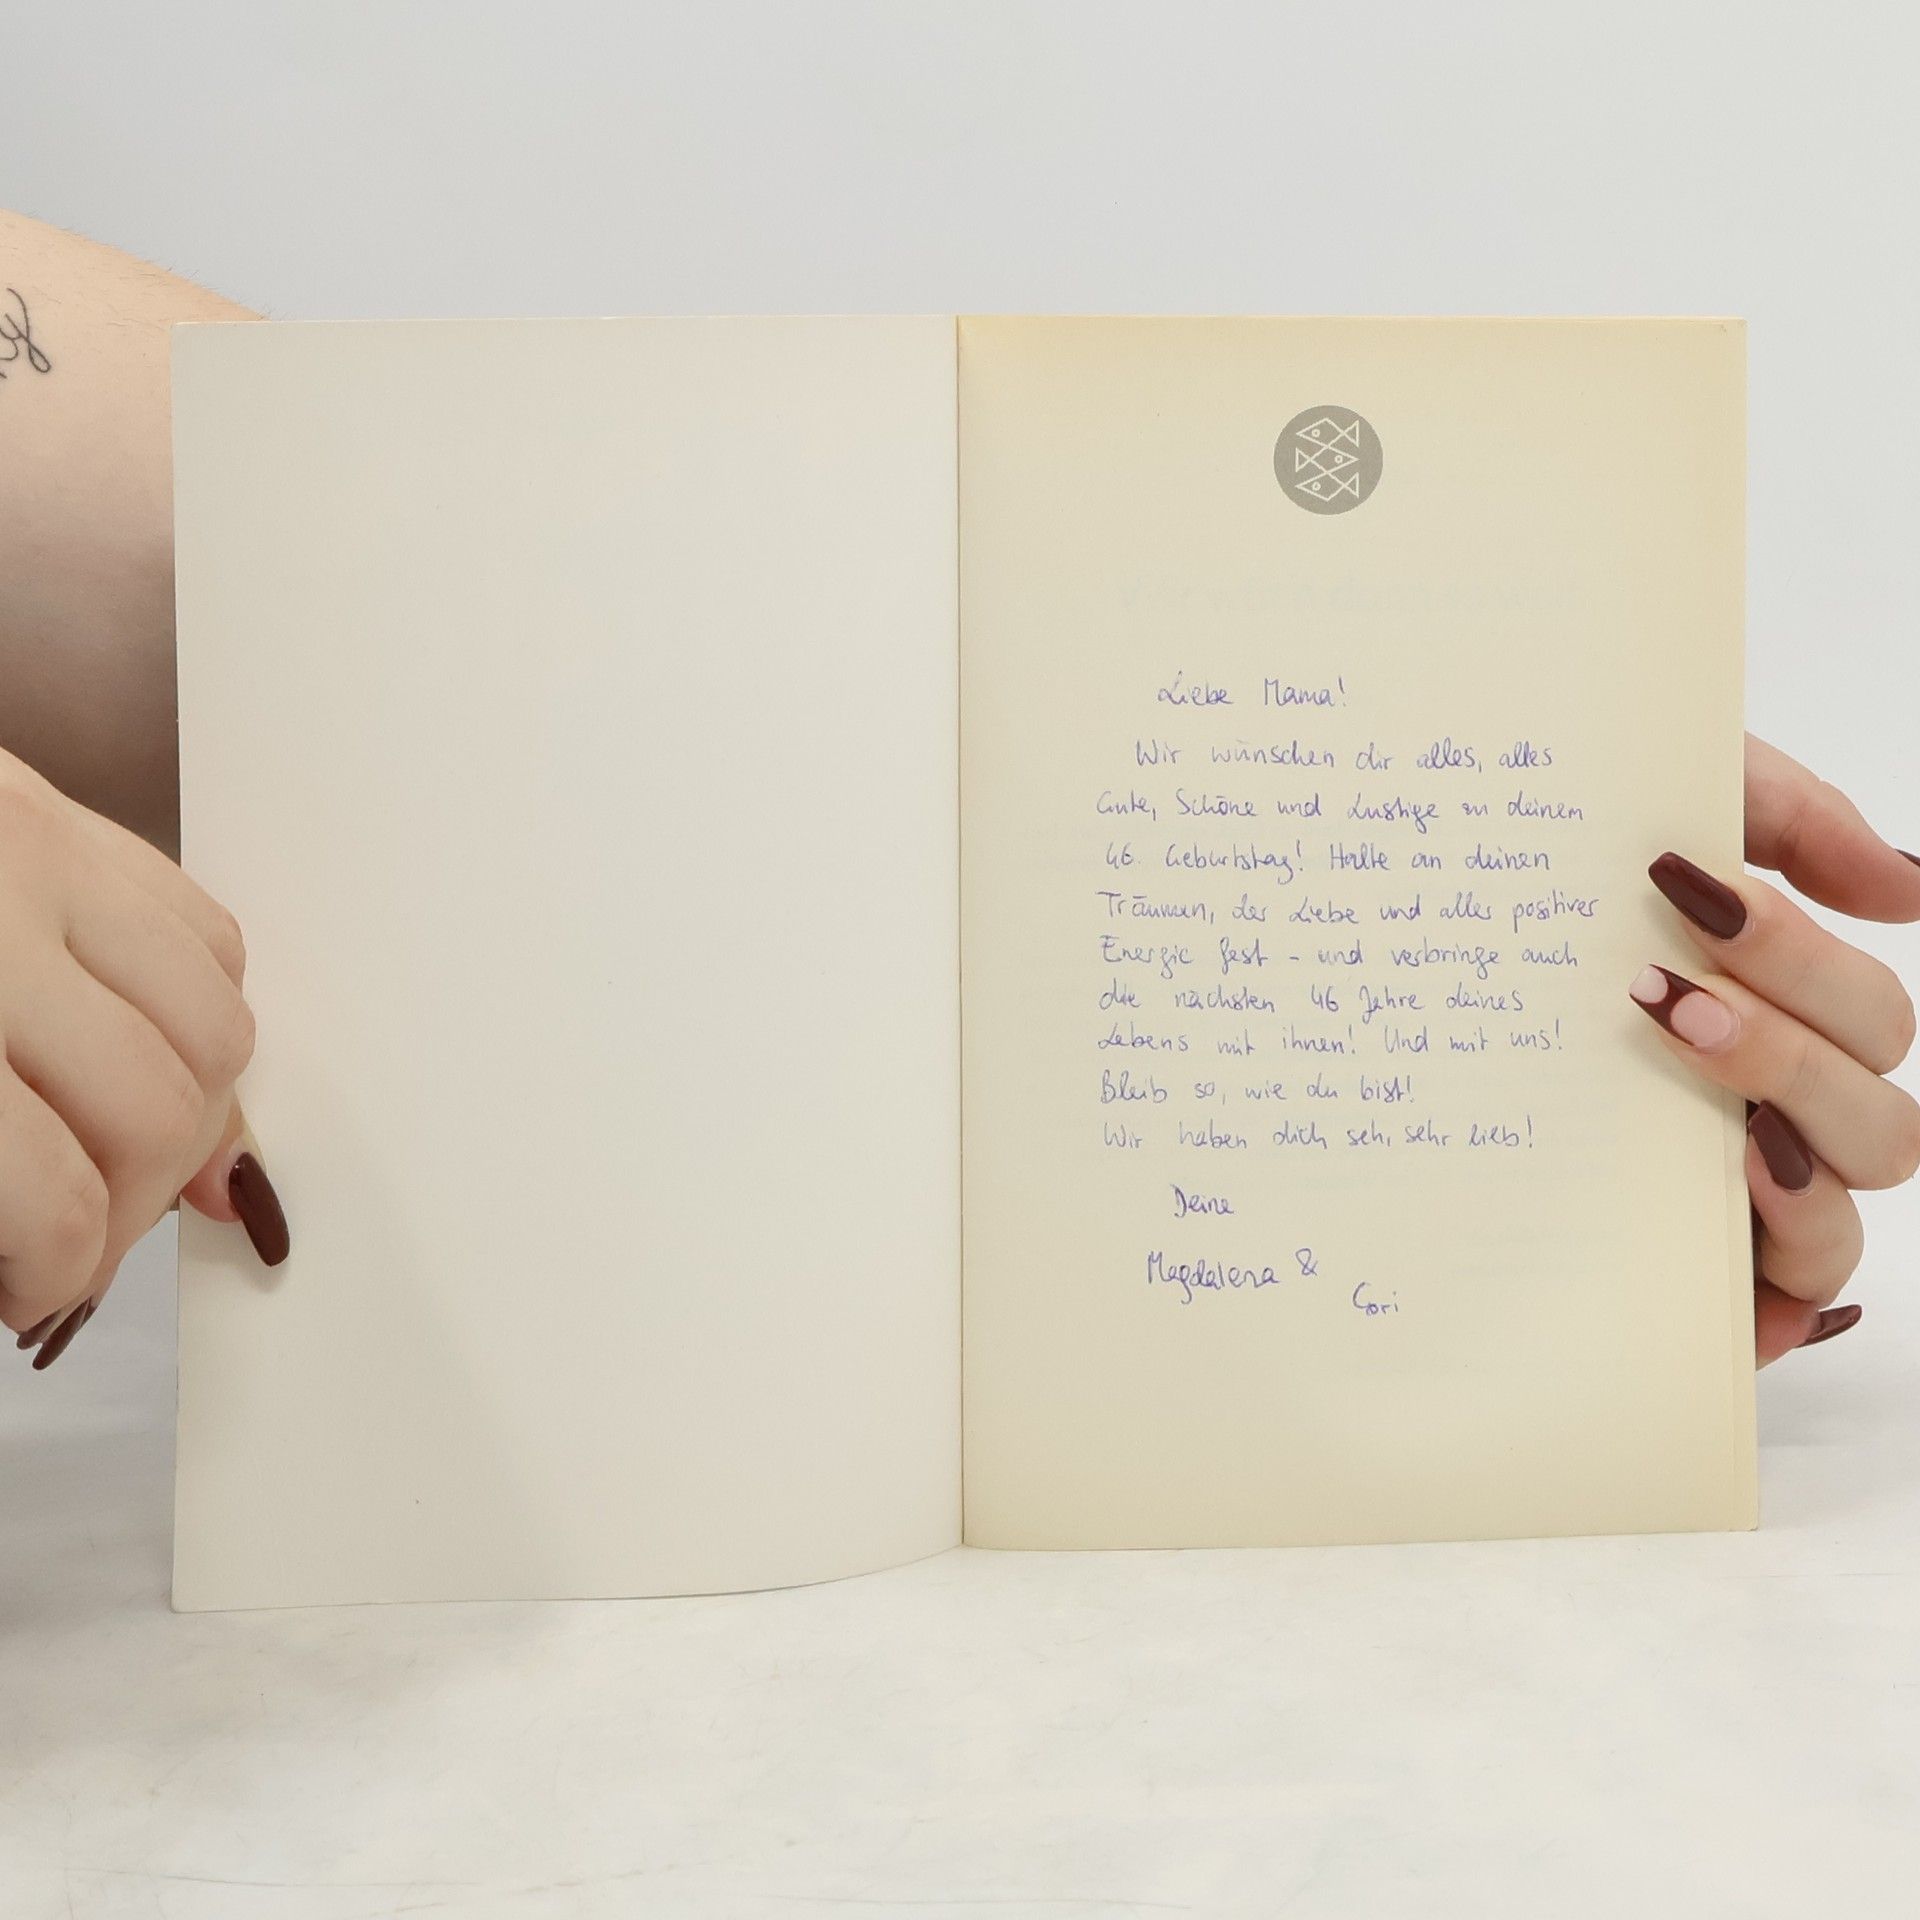 Liebe Mama!
Wir wünschen dir alles, alles
Gute, Schöne und Lustige zu deinem
46. Geburtstag! Halte an deinen
Träumen, der Liebe und aller positiver
Energie fest - und verbringe auch
die nächsten 46 Jahre deines
Lebens mit ihnen! Und mit uns!
Bleib so, wie du bist!
Wir haben dich sehr, sehr lieb!
Deine
Magdalena &
Cori